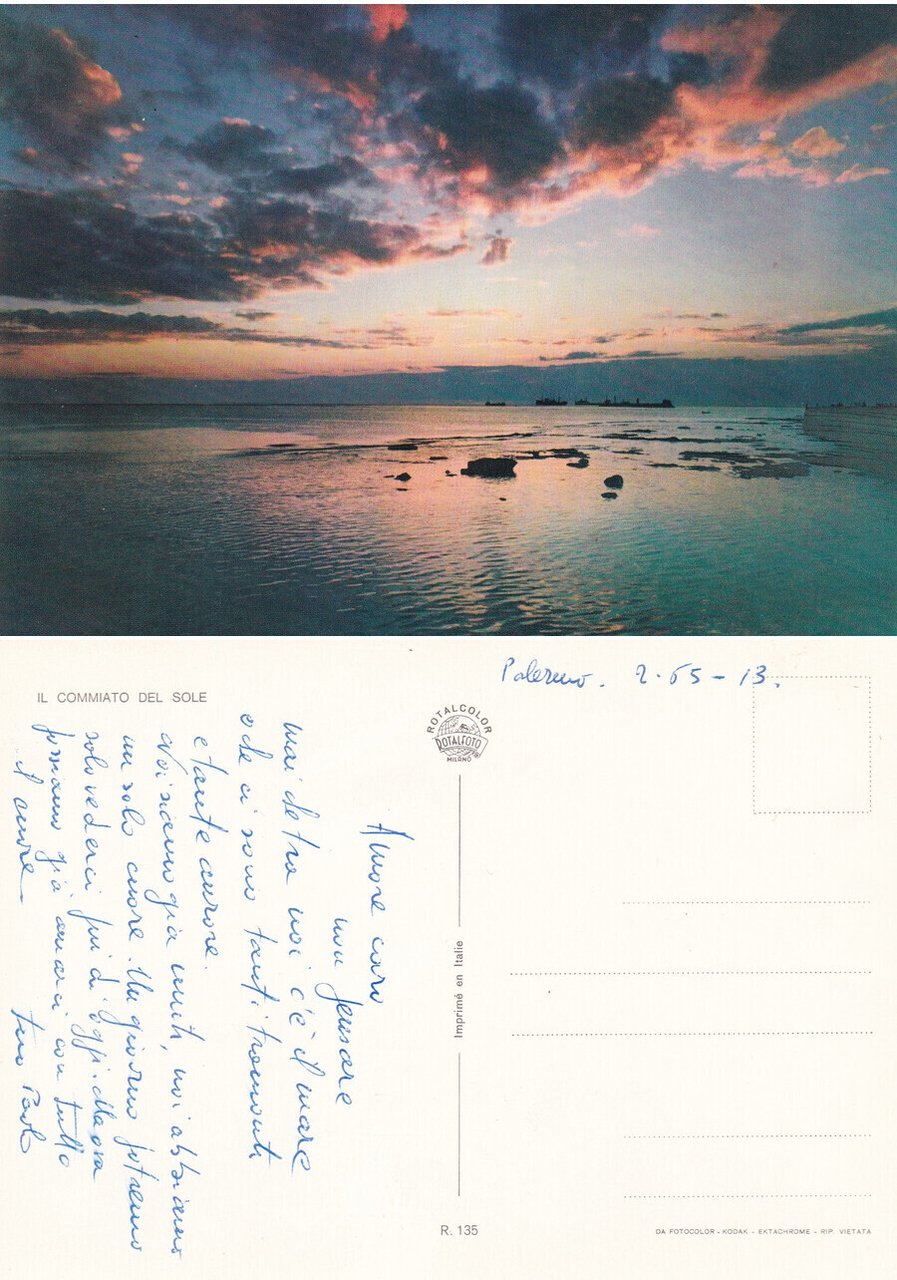 IL COMMIATO DEL SOLE
Palermo. 2-65-13.
ROTALCOLOR
ROTALFOTO
MILANO
Amore caro
non pensare
mai che tra noi c'è il mare
e che ci sono tanti tramonti
e tante aurore.
Noi siamo già uniti, noi abbiamo
un solo cuore. Un giorno potremo
solo vederci più di oggi. Ma ora
possiamo già amarci con tutto
il cuore.
tuo Paolo
Imprimé en Italie
R. 135
DA FOTOCOLOR - KODAK - EKTACHROME - RIP. VIETATA